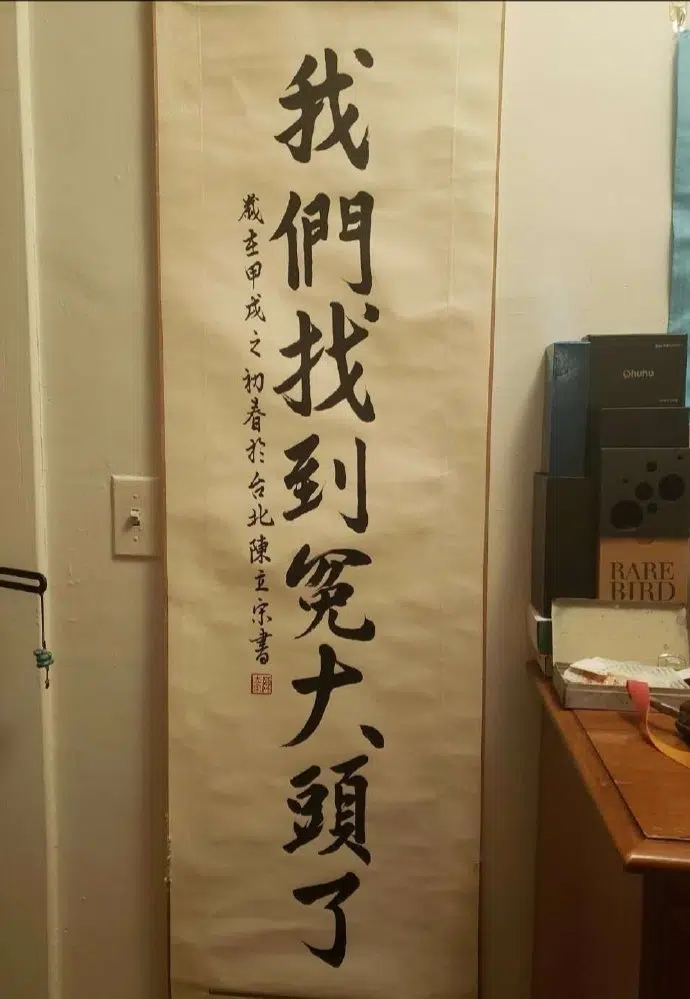 我們找到冤大頭了
歲在甲戌之初春於台北陳立宗書
Ohuhu
RARE
BIRD